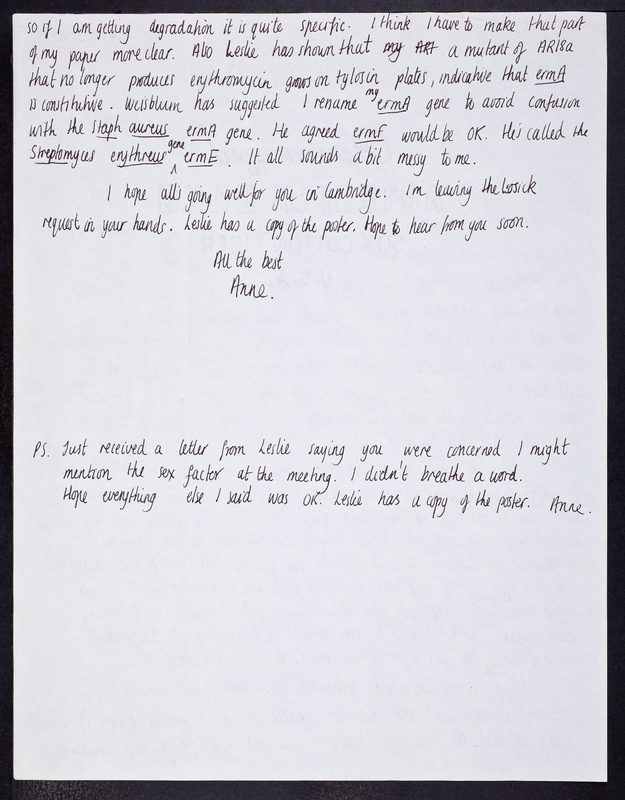 so if I am getting degradation it is quite specific. I think I have to make that part
of my paper more clear. Also Leslie has shown that my ART a mutant of AR18a
that no longer produces erythromycin grows on tylosin plates, indicative that ermA
is constitutive. Weisblum has suggested I rename my ermA gene to avoid confusion
with the Staph aureus ermA gene. He agreed ermF would be OK. He's called the
Streptomyces erythreus gene ermE. It all sounds a bit messy to me.
I hope all's going well for you in Cambridge. I'm leaving the
request in your hands. Leslie has a copy of the poster. Hope to hear from you soon.
All the best
Anne.
PS. Just received a letter from Leslie saying you were concerned I might
mention the sex factor at the meeting. I didn't breathe a word.
Hope everything else I said was OK. Leslie has a copy of the poster. Anne.